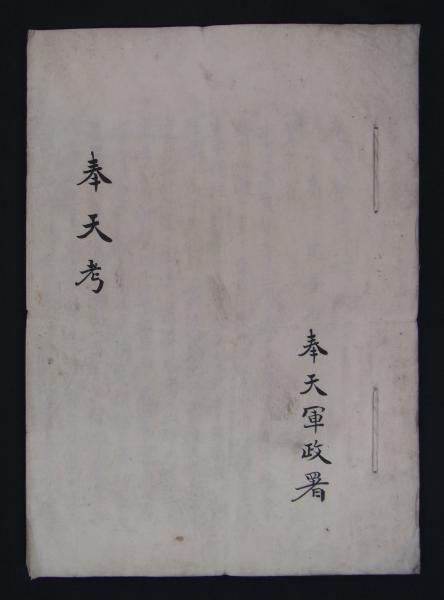 奉天軍政署
奉天考